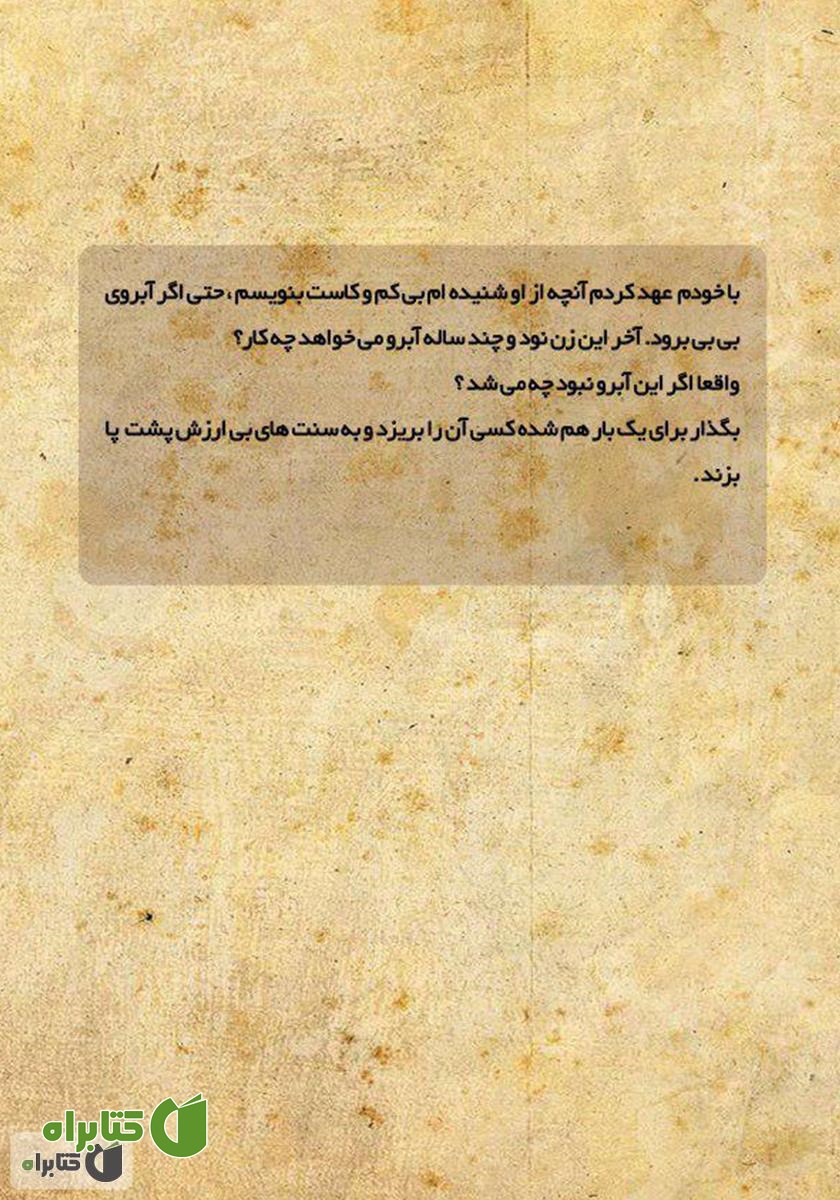 با خودم عهد کردم آنچه از او شنیده ام بی کم و کاست بنویسم ، حتی اگر آبروی
بی بی برود. آخر این زن نود و چند ساله آبرو می خواهد چه کار؟
واقعا اگر این آبرو نبود چه می شد ؟
بگذار برای یک بار هم شده کسی آن را بریزد و به سنت های بی ارزش پشت پا
بزند.
کتابراه
کتابراه